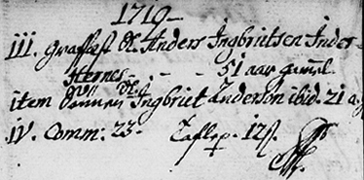 1719 -
iii. Graffæst S. Anders Ingbrictsen Inder
Hernes - - 51 aar gammel
item Sønnen Ingbrict Anderson ibid. 21 a
iv. Comm: 23 - Tafler. 12 s.